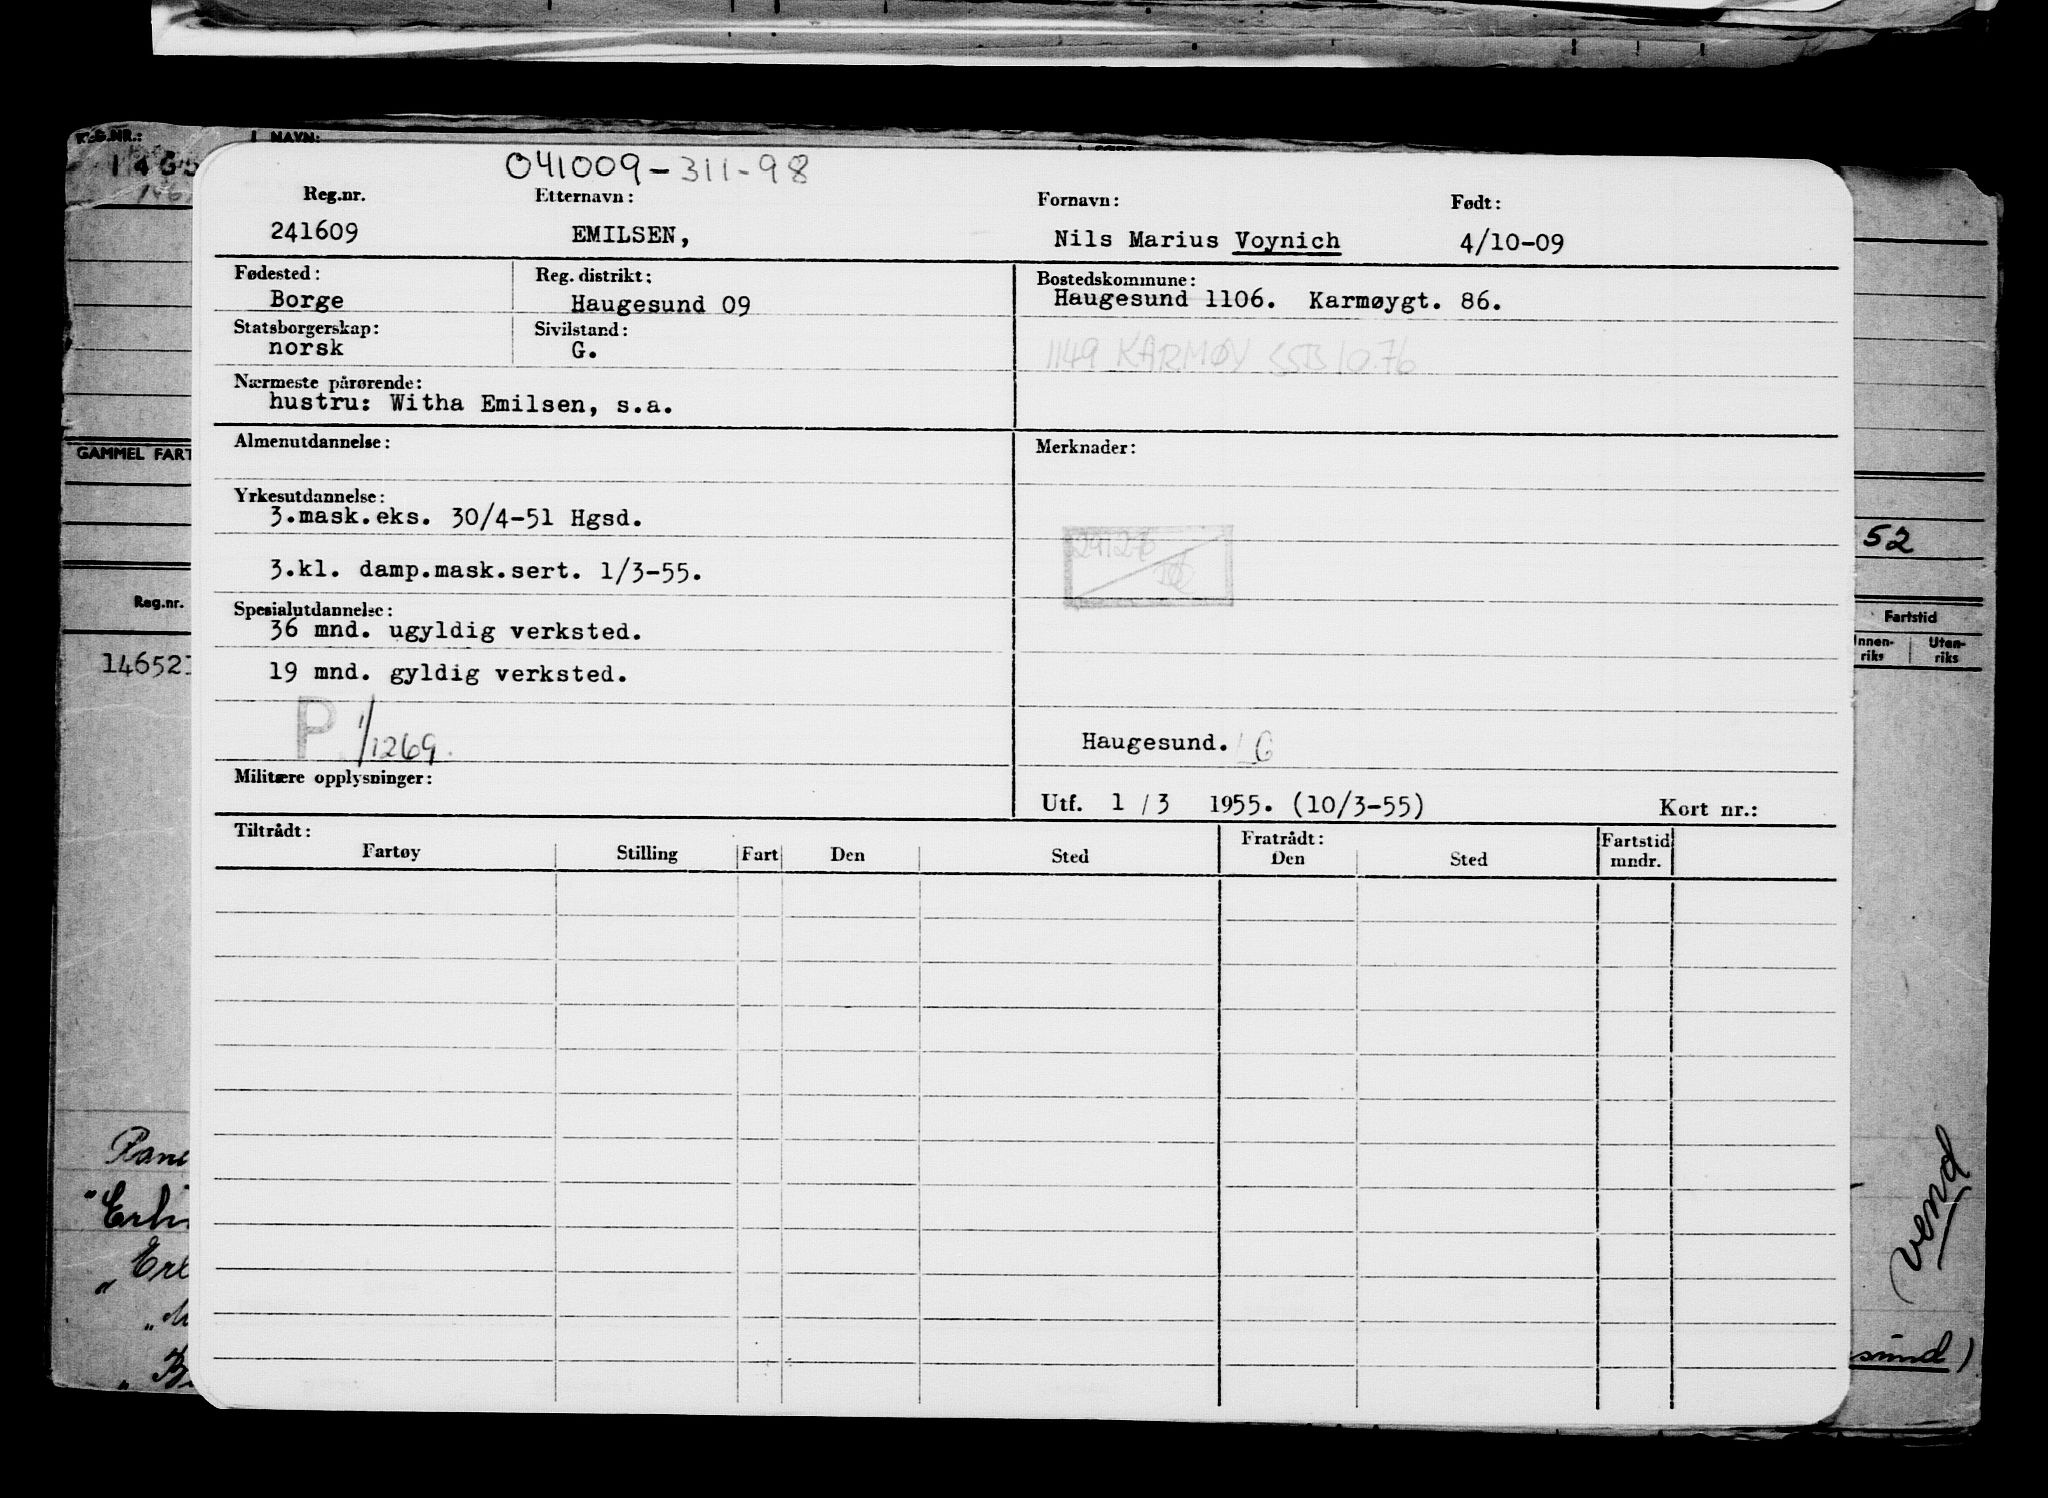 REG.NR.: NAVN:
041009-311-98
Reg.nr. Etternavn: Fornavn: Født:
241609 EMILSEN, Nils Marius Voynich 4/10-09
Fødested: Reg. distrikt: Bostedskommune:
Borge Haugesund 09 Haugesund 1106. Karmøygt. 86.
Statsborgerskap: Sivilstand:
norsk G. 1149 KARMØY SSB 10.76
Nærmeste pårørende:
hustru: Witha Emilsen, s.a.
Almenutdannelse: Merknader:
GAMMEL FART
Yrkesutdannelse:
3.mask.eks. 30/4-51 Hgsd.
52
3.kl. damp.mask.sert. 1/3-55.
Reg.nr. Spesialutdannelse: Fartstid
36 mnd. ugyldig verksted.
Innen-riks Uten-riks
14652
19 mnd. gyldig verksted.
P 1/1269.
Haugesund.
Militære opplysninger:
Utf. 1 / 3 1955. (10/3-55) Kort nr.:
Tiltrådt: Fratrådt: Fartstid
Fartøy Stilling Fart Den Sted Den Sted mndr.
vend
sund)